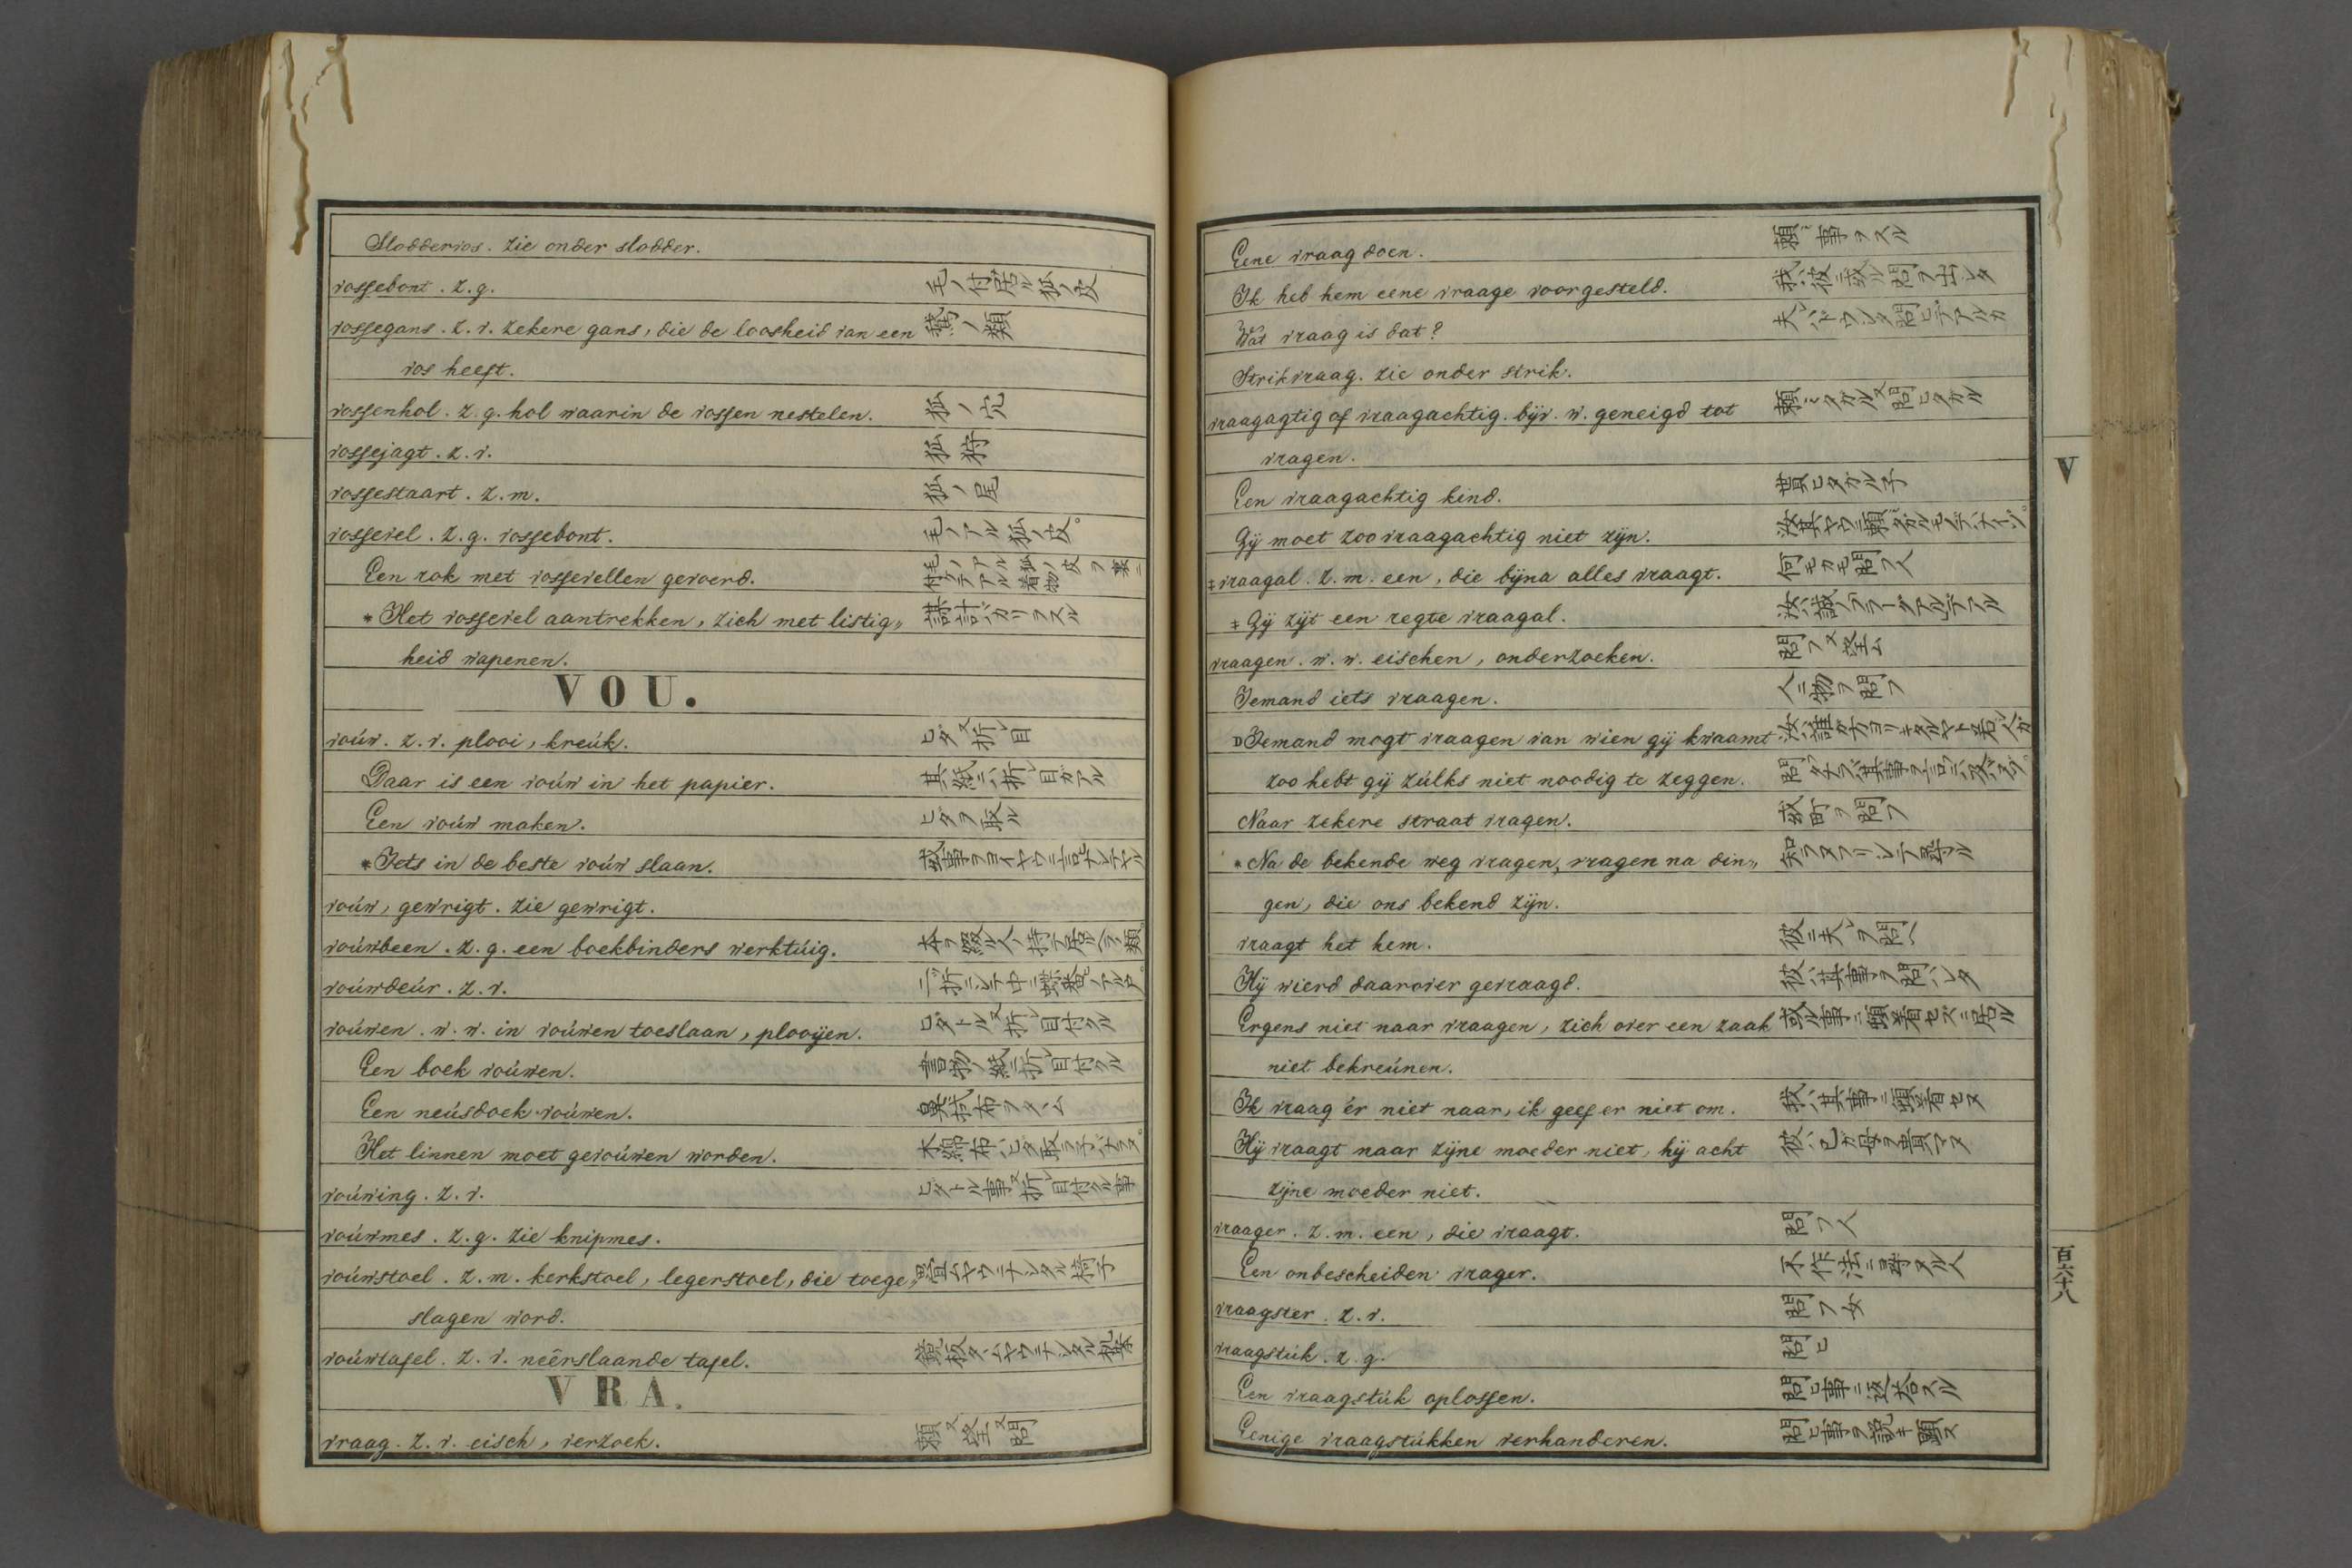 Sloddervos. zie onder slodder.
vossebont. z. g. 毛ノ付居ル狐ノ皮
vossegans. z. v. zekere gans, die de loosheid van een 鵞ノ類
vos heeft.
vossenhol. z. g. hol waarin de vossen nestelen. 狐ノ穴
vossejagt. z. v. 狐狩
vossestaart. z. m. 狐ノ尾
vossevel. z. g. vossebont. 毛ノアル狐ノ皮。
Een rok met vossevellen gevoerd. 毛ノアル狐ノ皮ヲ裏ニ付ケテアル着物
*Het vossevel aantrekken, zich met listig„ 謀計バカリヲスル
heid wapenen.
VOU.
voúw. z. v. plooi, kreúk. ヒダ又折レ目
Daar is een voúw in het papier. 其紙ニハ折レ目ガアル
Een voúw maken. ヒダヲ取ル
*Iets in de beste voúw slaan. 或事ヲヨイヤウニ言ヒナシテヤル
voúw, gewrigt. zie gewrigt.
voúwbeen. z. g. een boekbinders werktúig. 本ヲ綴ル人ノ持テ居ル
voúwdeúr. z. v.
voúwen. w. w. in voúwen toeslaan, plooijen. ヒダトル又折レ目付クル
Een boek voúwen. 書物ノ紙ニ折レ目付クル
Een neúsdoek voúwen. 鼻拭布ヲタヽム
Het linnen moet gevoúwen worden. 木綿布ハヒダ取ラ子バナラヌ。
voúwing. z. v. ヒダトル事又折レ目付クル事
voúwmes. z. g. zie knipmes.
voúwstoel. z. m. kerkstoel, legerstoel, die toege„ 畳ムヤウニナシタル椅子
slagen word.
voúwtafel. z. v. neêrslaande tafel.
VRA.
vraag. z. v. eisch, verzoek. 頼又望又問
Eene vraag doen. 頼ミ事ヲスル
Ik heb hem eene vraage voorgesteld. 我ハ彼ニ或ル問ヲ出シタ
Wat vraag is dat? 夫レハドウシタ問ヒデアルカ
Strikvraag. zie onder strik.
vraagagtig of vraagachtig. bijv. w. geneigd tot 頼ミタガル又問ヒタガル
vragen.
Een vraagachtig kind. 貰ヒタガル子
Gij moet zoo vraagachtig niet zijn. 汝其ヤウニ頼ミタガルモノデハナイゾ。
‡vraagal. z. m. een, die bijna alles vraagt. 何モカモ問フ人
‡Gij zijt een regte vraagal. 汝ハ誠ノフラーガアルデアル
vraagen. w. w. eischen, onderzoeken. 問フ又望ム
Iemand iets vraagen. 人ニ物ヲ問フ
Iemand mogt vraagen van wien gij kwaamt 汝ハ誰ガ方ヨリキタルヤト若シ人ガ
zoo hebt gij zúlks niet noodig te zeggen.
Naar zekere straat vragen. 或町ヲ問フ
*Na de bekende weg vragen, vragen na din„ 知ラヌフリシテ尋ル
gen, die ons bekend zijn.
vraagt het hem. 彼ニ夫レヲ問ヘ
Hij wierd daarover gevraagd. 彼ハ其事ヲ問ハレタ
Ergens niet naar vraagen, zich over een zaak 或ル事ニ頓着セズニ居ル
niet bekreúnen.
Ik vraag ér niet naar, ik geef er niet om. 我ハ其事ニ頓着セヌ
Hij vraagt naar zijne moeder niet, hij acht 彼ハ己ガ母ヲ貴マヌ
zijne moeder niet.
vraager. z. m. een, die vraagt. 問フ人
Een onbescheiden vrager. 不作法ニ尋ヌル人
vraagster. z. v. 問フ女
vraagstúk. z. g. 問ヒ
Een vraagstúk oplossen. 問ヒ事ニ返答スル
Eenige vraagstúkken verhanderen. 問ヒ事ヲ説キ顕ス
V
百六十八